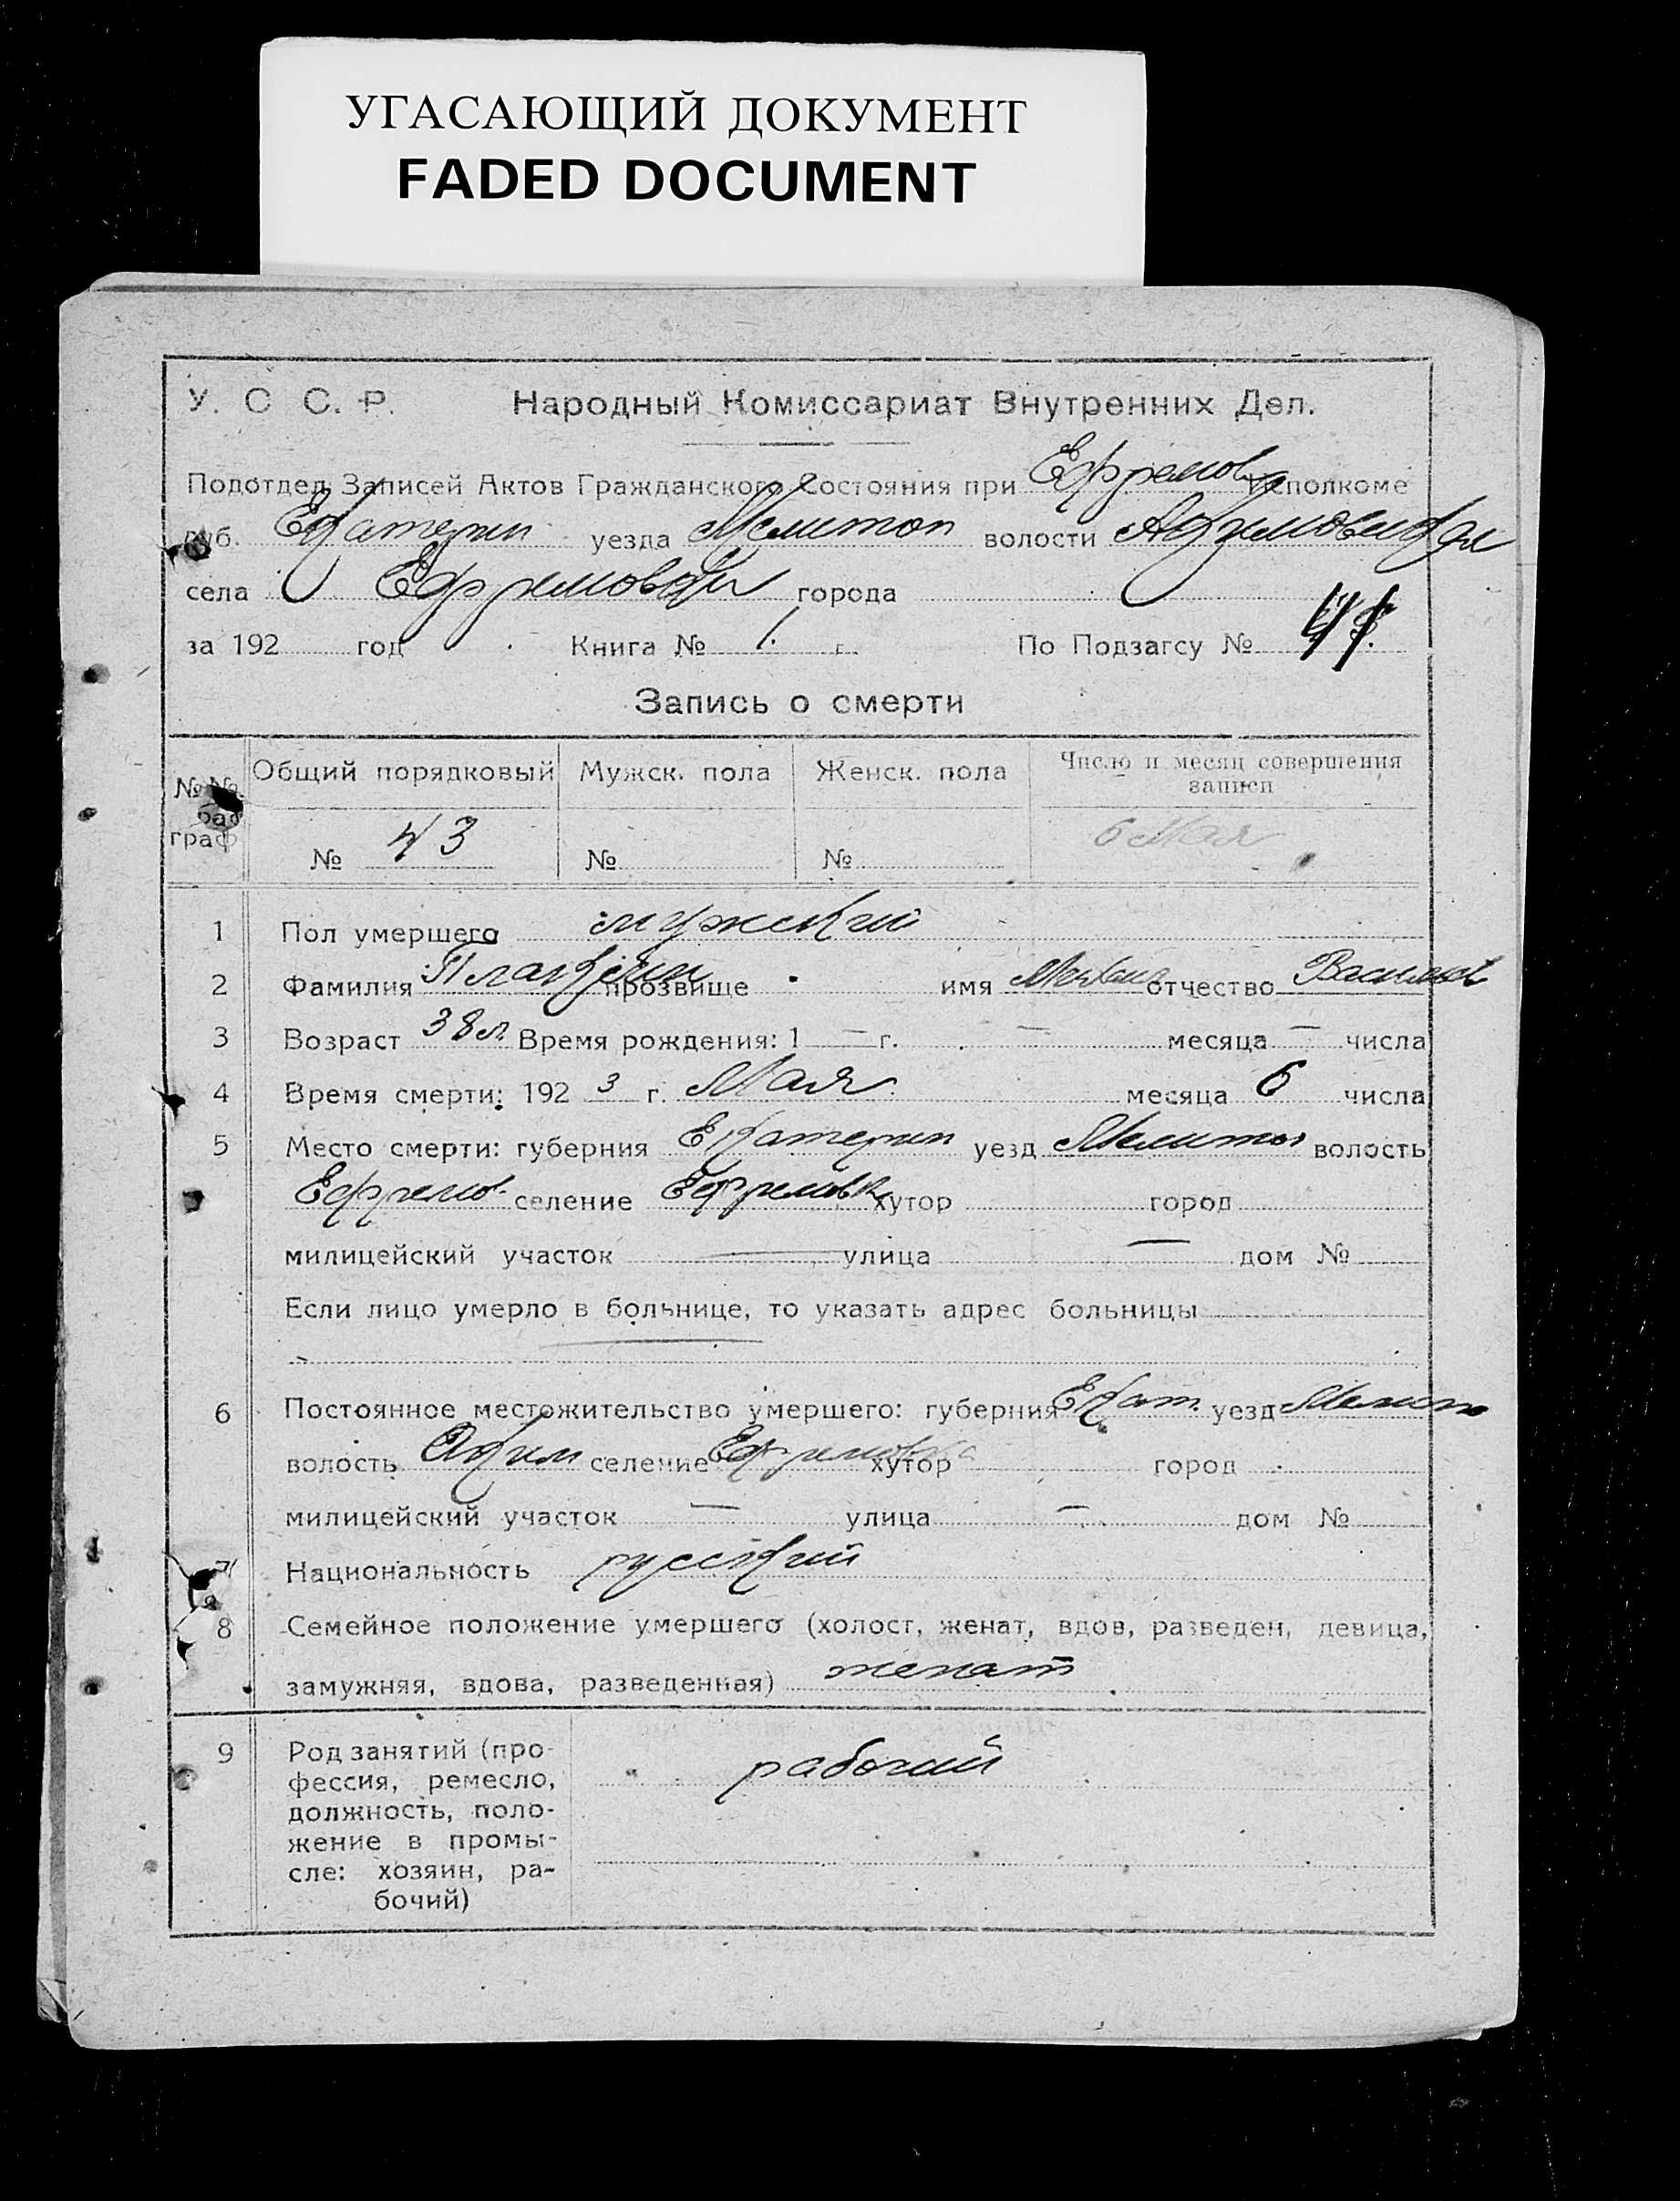 УГАСАЮЩИЙ ДОКУМЕНТ
FADED DOCUMENT
У. С С. Р. Народный Комиссариат Внутренних Дел.
Подотдел Записей Актов Гражданского Состояния при Ефремов исполкоме
губ. Екатерин уезда Мелитоп волости Акимовской
села Ефремовки города
за 192 год Книга № 1. г. По Подзагсу №
Запись о смерти
№№ граф Общий порядковый Мужск. пола Женск. пола Число и месяц совершения записи
№ 43 № № 6 Мая
1 Пол умершего мужской
2 Фамилия прозвище имя отчество
3 Возраст 38 л. Время рождения: 1 — г. — месяца — числа
4 Время смерти: 192 3 г. Мая месяца 6 числа
5 Место смерти: губерния Екатерин уезд Мелитоп волость
Ефремов. селение Ефремовк хутор город
милицейский участок — улица — дом №
Если лицо умерло в больнице, то указать адрес больницы
6 Постоянное местожительство умершего: губерния Екат. уезд Мелит
волость Аким селение Ефремовка хутор город
милицейский участок — улица — дом №
7 Национальность русский
8 Семейное положение умершего (холост, женат, вдов, разведен, девица,
замужняя, вдова, разведенная) женат
9 Род занятий (про- рабочий
фессия, ремесло,
должность, поло-
жение в промы-
сле: хозяин, ра-
бочий)